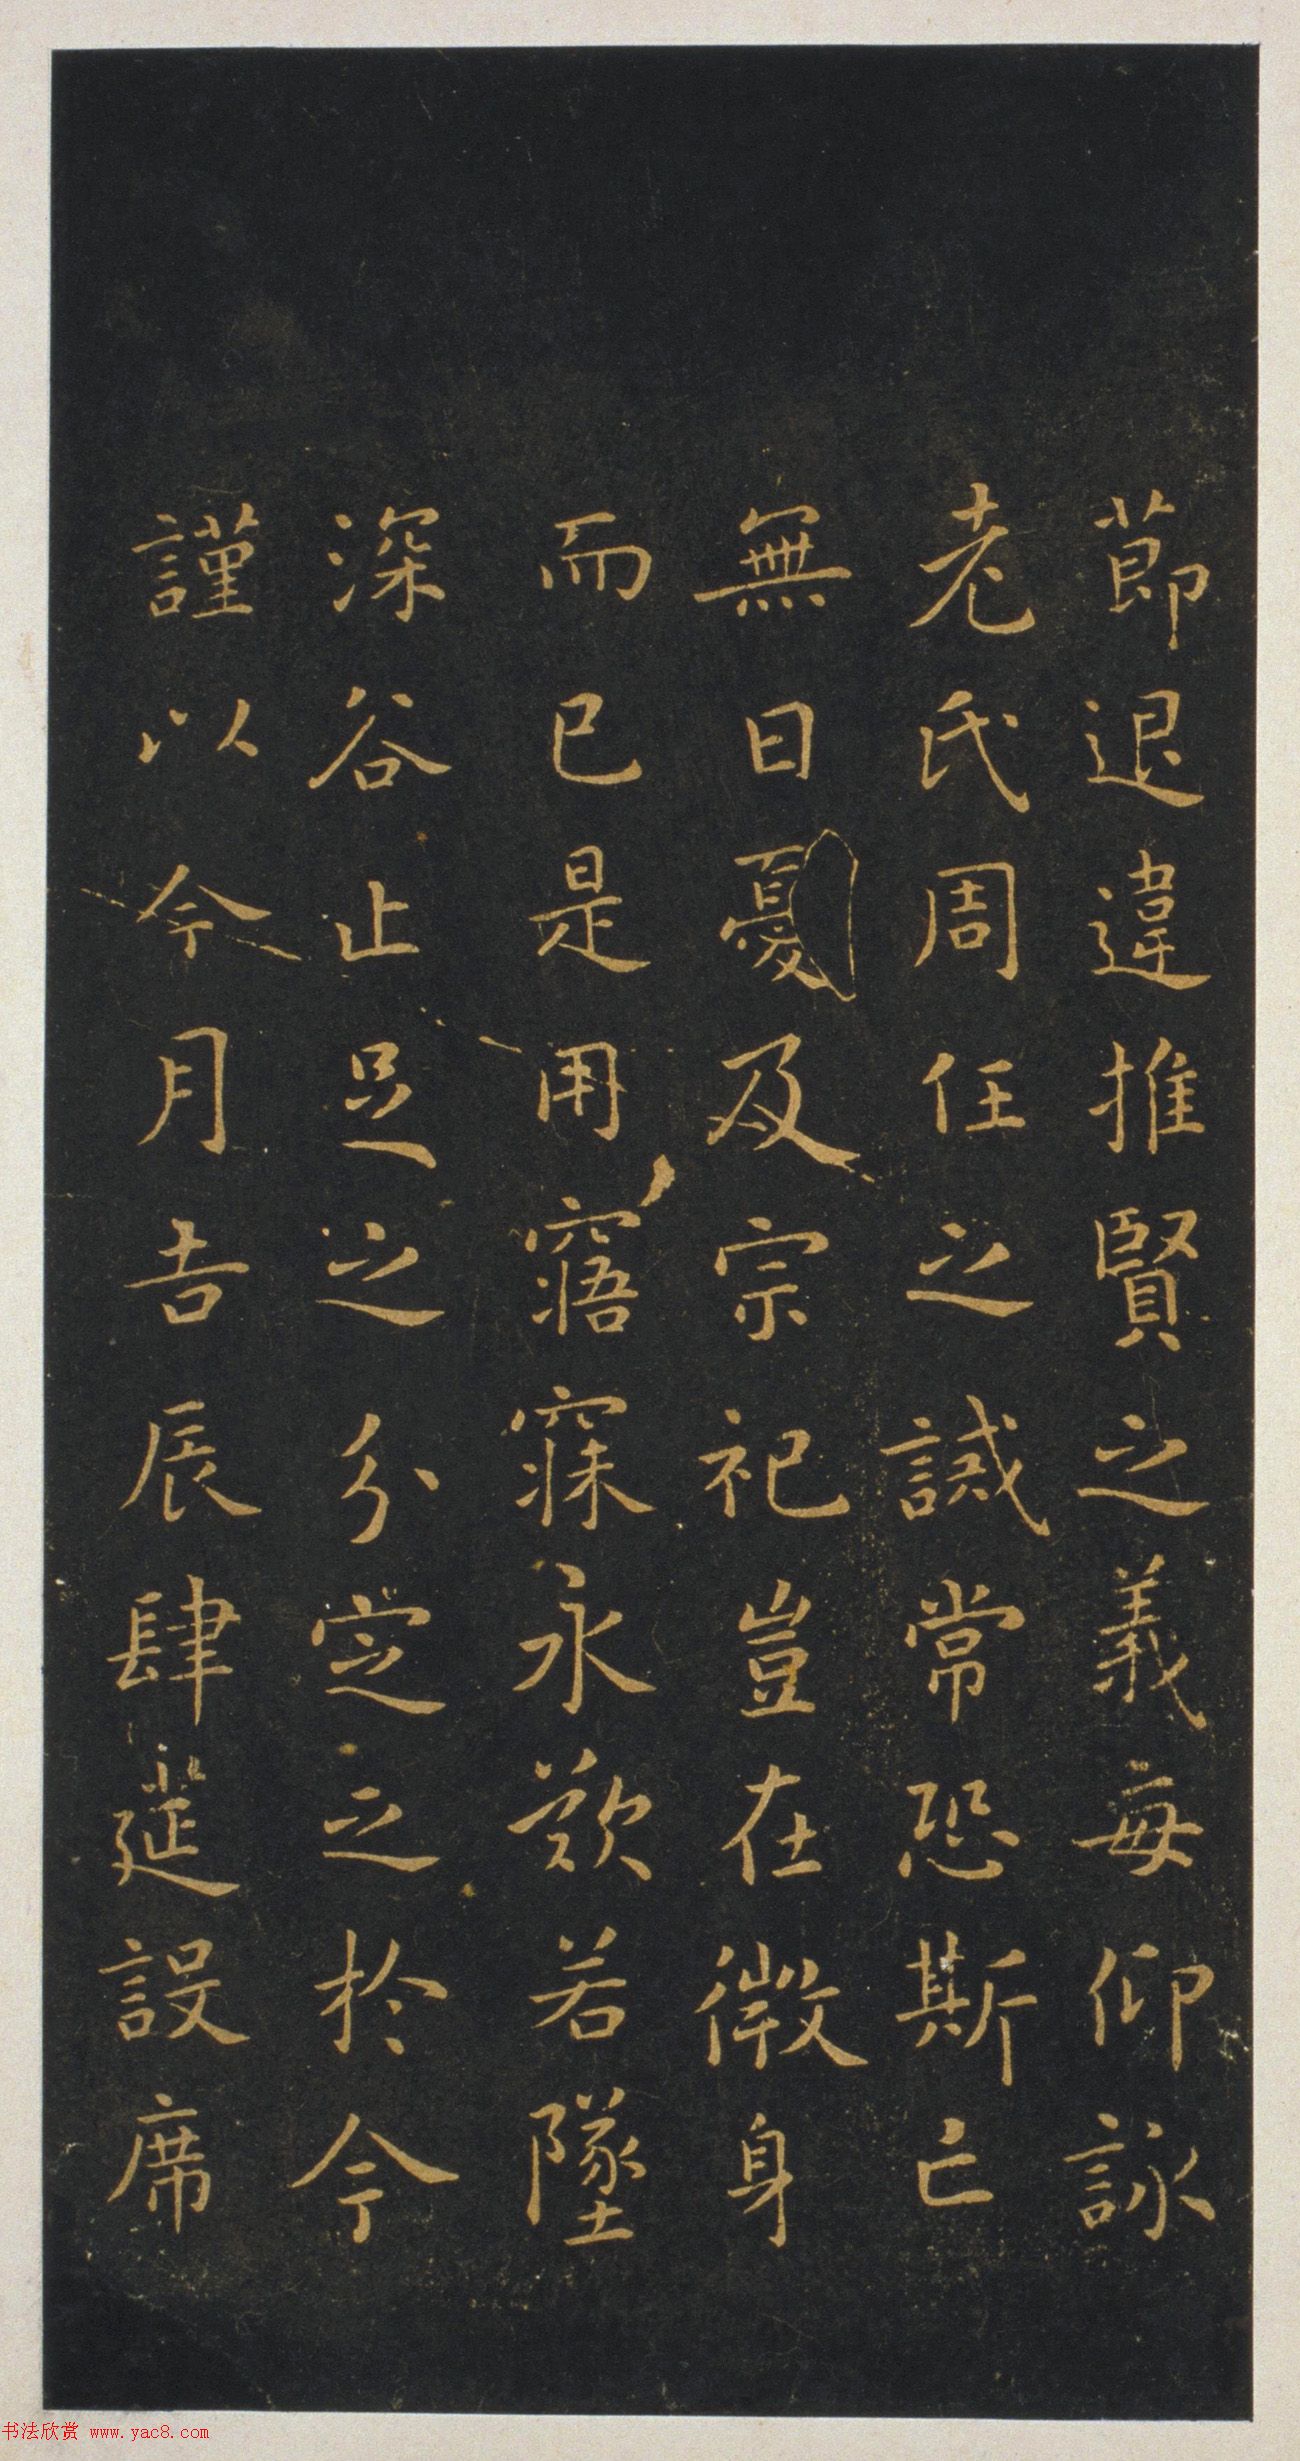 節退違推賢之義每仰詠
老氏周任之誡常恐斯亡
無日憂及宗祀豈在微身
而已是用寤寐永歎若墜
深谷止足之分定之於今
謹以今月吉辰肆筵設席
书法欣赏 www.yac8.com